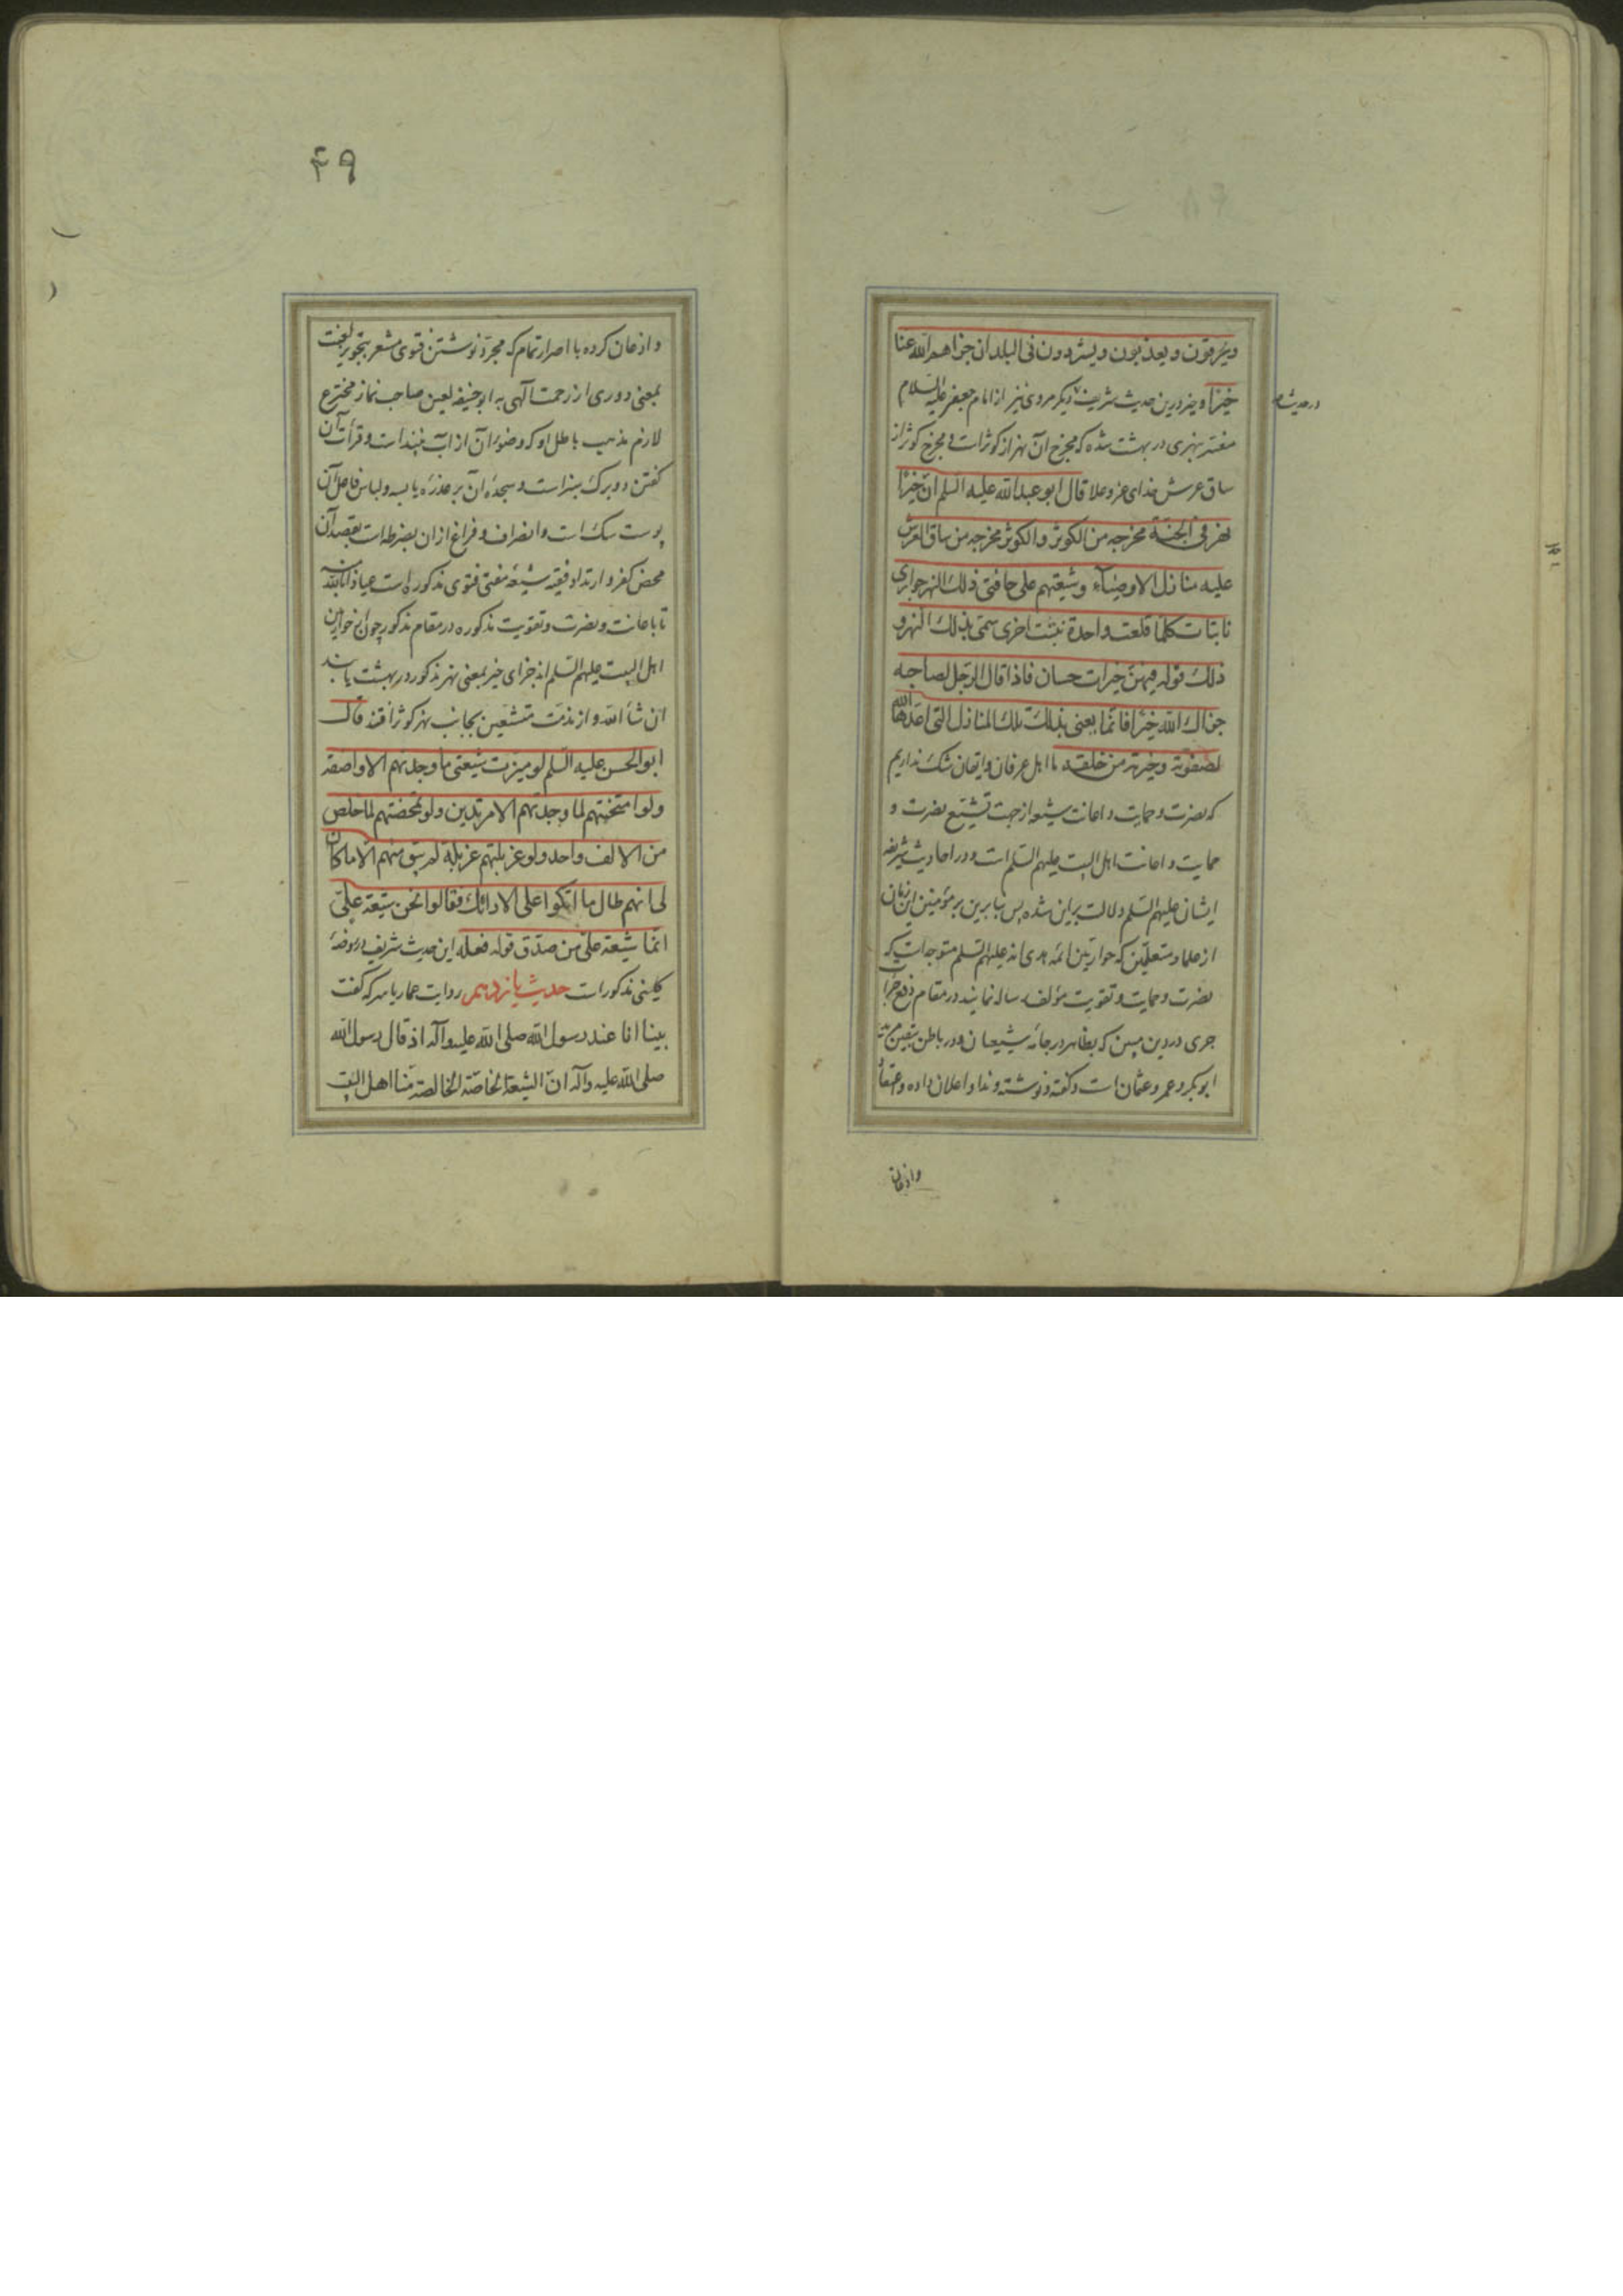 ویغرقون و یعذبون و یشردون فی البلدان جزاهم الله عنا
خیرا و خیر درین حدیث شریف دیکر مروی نیز از امام جعفر علیه السلام
در حدیث
مفسر بنهری در بهشت شده که مخرج آن نهر از کوثر است و مخرج کوثر از
ساق عرش خدای عز و علا قال ابو عبدالله علیه السلم ان خیرا
نهر فی الجنة مخرجه من الکوثر و الکوثر مخرجه من ساق العرش
علیه منازل الاوصیآء و شیعتهم علی حافتی ذلک النهر جواری
نابتات کلما قلعت واحدة نبتت اخری سمی بذلک النهر و
ذلک قوله فیهن خیرات حسان فاذا قال الرجل لصاحبه
جزاک الله خیرا فانما یعنی بذلک تلک المنازل التی اعدها الله
لصفوته و خیرته من خلقه ما اهل عرفان و ایقان شک نداریم
که نصرت و حمایت و اعانت شیعه از جهت تشیع نصرت و
حمایت و اعانت اهل البیت علیهم السلم است و در احادیث شریفه
ایشان علیهم السلم دلالت بر این شده پس بنابرین بر مؤمنین این زمان
از علما و متعلمین که حواریین ائمه هدی اند علیهم السلم متوجه است که
نصرت و حمایت و تقویت مؤلف رساله نمایند در مقام دفع
جری در دین مبین که بظاهر در جامه شیعیان و در باطن
ابو بکر و عمر و عثمان است و کفته و نوشته و ندا و اعلان داده و
واذعان
۴۹
و اذعان کرده با اصرار تمام که مجرد نوشتن فتوی مشعر بتجویز لعنت
بمعنی دوری از رحمت آلهی به ابو حنیفه لعین صاحب نماز مخترع
لازم مذهب باطل او که وضوء آن از آب نبیذ است و قرأت آن
کفتن دو برک سبز است و سجده آن بر عذره یابسه و لباس فاعل آن
پوست سک است و انصراف و فراغ از ان بضرطه است بقصد آن
محض کفر و ارتداد فقیه شیعه مفتی فتوی مذکوره است عیاذا بالله
تا باعانت و نصرت و تقویت مذکوره در مقام مذکور چون از حواریین
اهل البیت علیهم السلم اند جزای خیر بمعنی نهر مذکور در بهشت یابند
ان شآ الله و از مذمت متشیعین بجانب نهر کوثر افتند قال
ابو الحسن علیه السلم لو میزت شیعتی ما وجدتهم الا واصفة
ولو امتحنتهم لما وجدتهم الا مرتدین ولو تمحصتهم لما خلص
من الالف واحد ولو غربلتهم غربلة لم یبق منهم الا ما کان
لی انهم طال ما اتکوا علی الارائک فقالوا نحن شیعة علی
انما شیعة علی من صدق قوله فعله این حدیث شریف در روضه
کلینی مذکور است حدیث یازدهم روایت عمار یاسر که کفت
بینا انا عند رسول الله صلی الله علیه و آله اذ قال رسول الله
صلی الله علیه و آله ان الشیعة الخاصة الخالصة منا اهل البیت